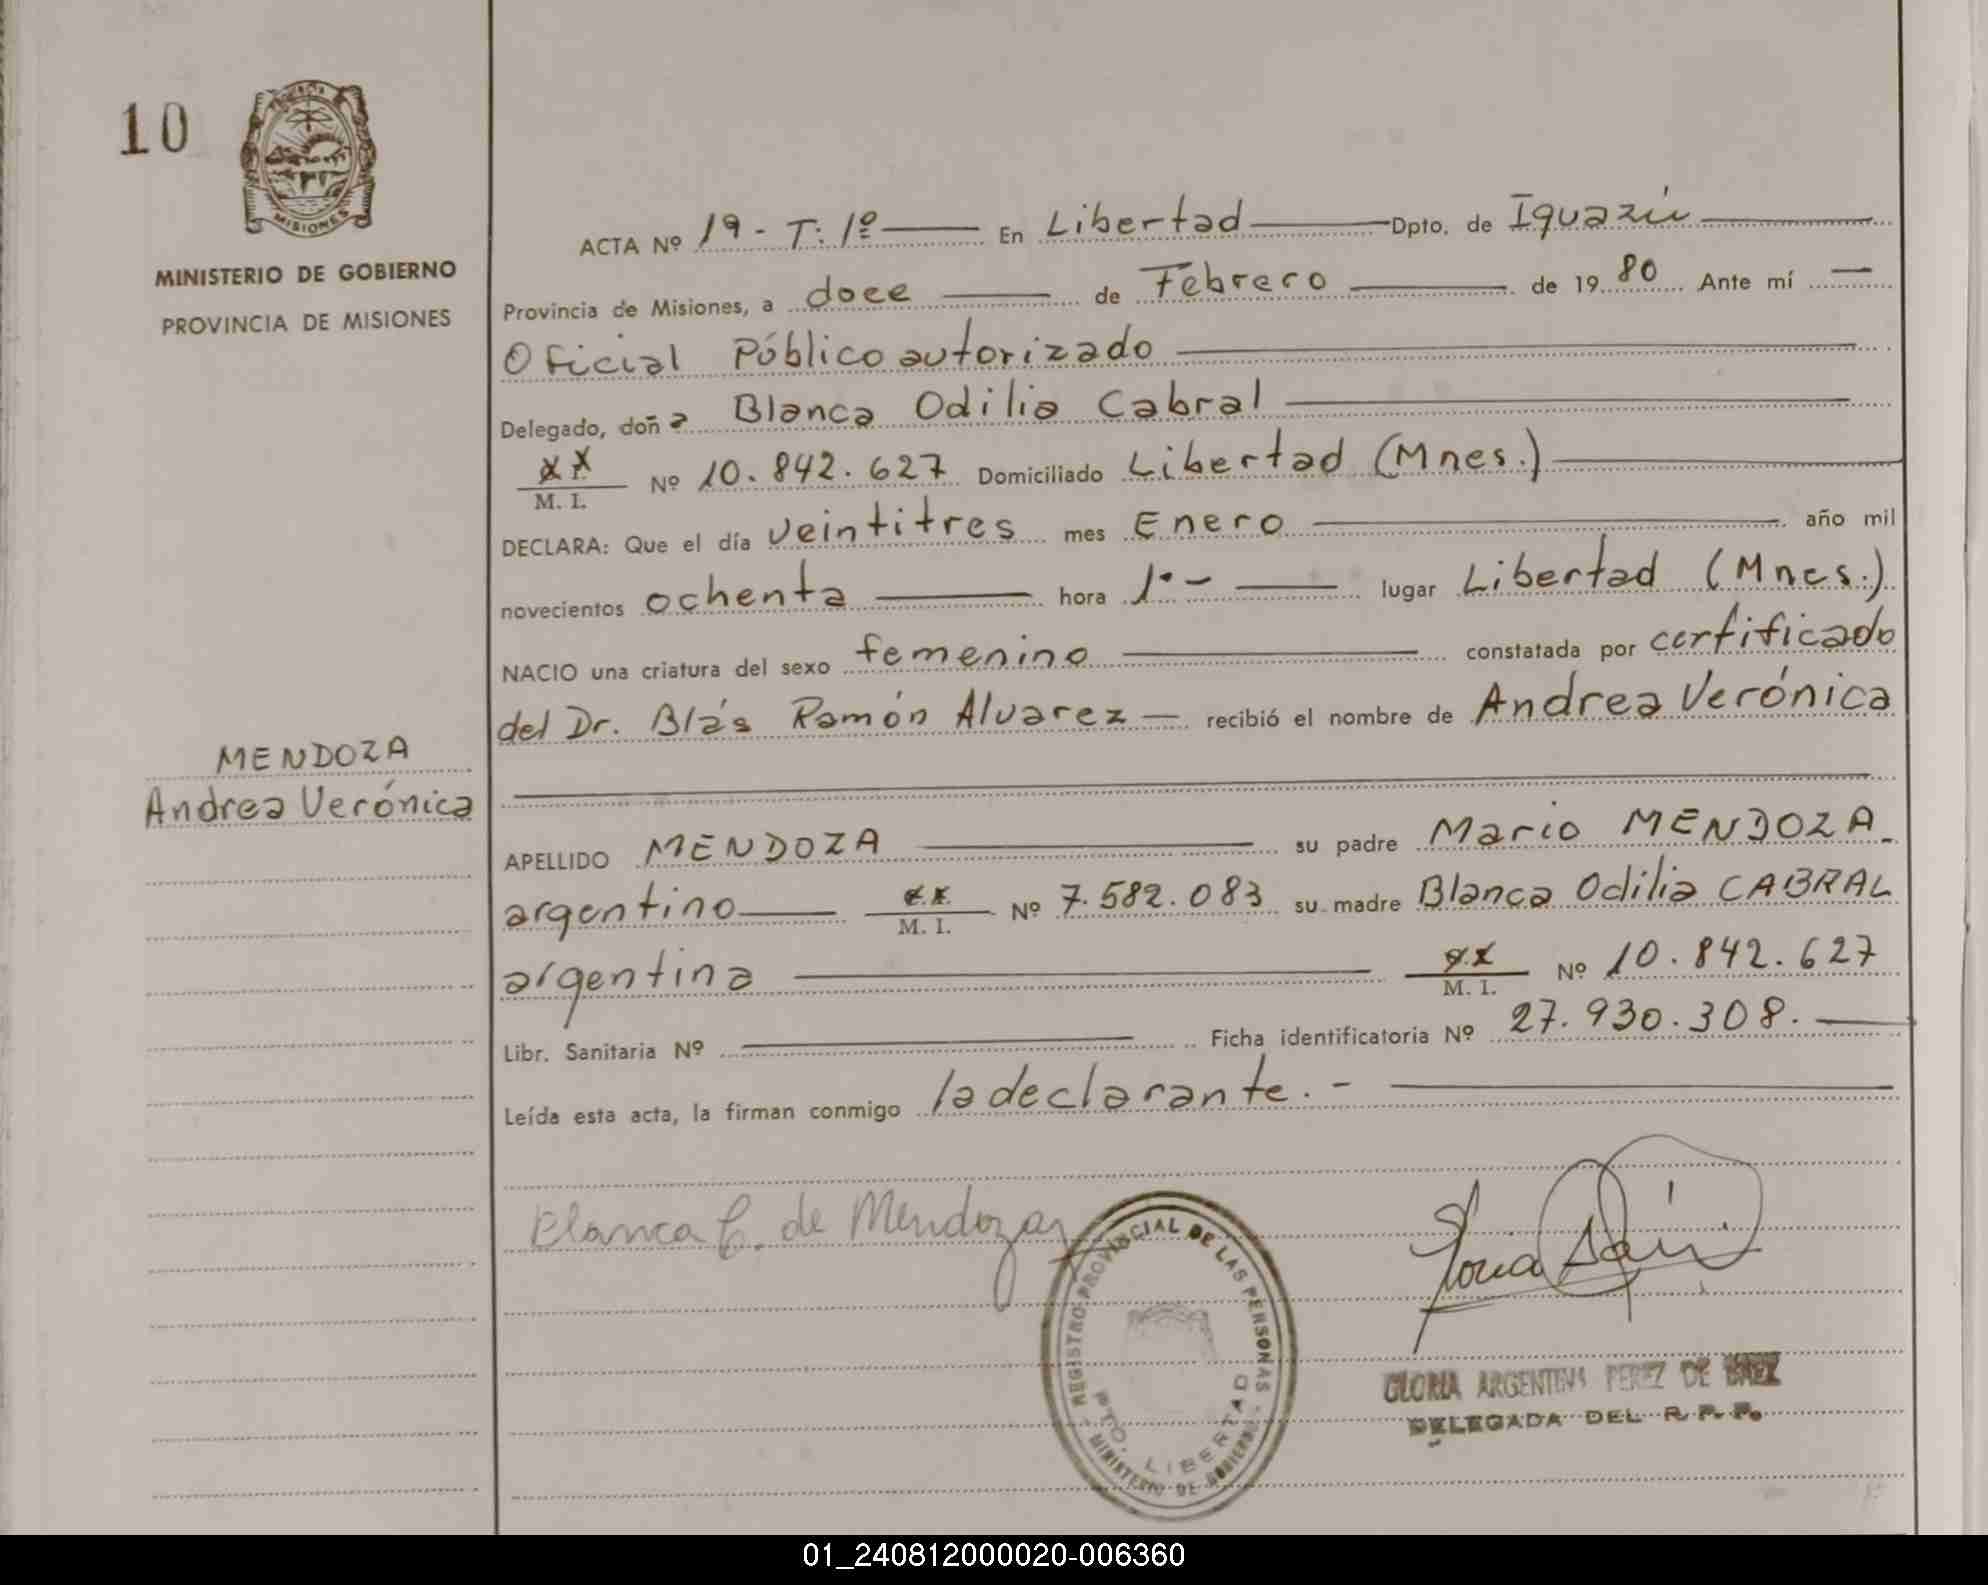 10
PROVINCIA
MISIONES
MINISTERIO DE GOBIERNO
PROVINCIA DE MISIONES
MENDOZA
Andrea Verónica
ACTA Nº 19 - T: 1º En Libertad Dpto. de Iguazú
Provincia de Misiones, a doce de Febrero de 1980 Ante mí
Oficial Público autorizado
Delegado, doña Blanca Odilia Cabral
M. I. Nº 10.842.627 Domiciliado Libertad (Mnes.)
DECLARA: Que el día veintitres mes Enero año mil
novecientos ochenta hora 1.- lugar Libertad (Mnes.)
NACIO una criatura del sexo femenino constatada por certificado
del Dr. Blás Ramón Alvarez — recibió el nombre de Andrea Verónica
APELLIDO MENDOZA su padre Mario MENDOZA.
argentino M. I. Nº 7.582.083 su madre Blanca Odilia CABRAL
argentina M. I. Nº 10.842.627
Libr. Sanitaria Nº Ficha identificatoria Nº 27.930.308.
Leída esta acta, la firman conmigo la declarante.-
Blanca C. de Mendoza
REGISTRO PROVINCIAL DE LAS PERSONAS
PTO. LIBERTAD
MINISTERIO DE GOBIERNO
GLORIA ARGENTINA PEREZ DE BAEZ
DELEGADA DEL R. P. P.
01_240812000020-006360